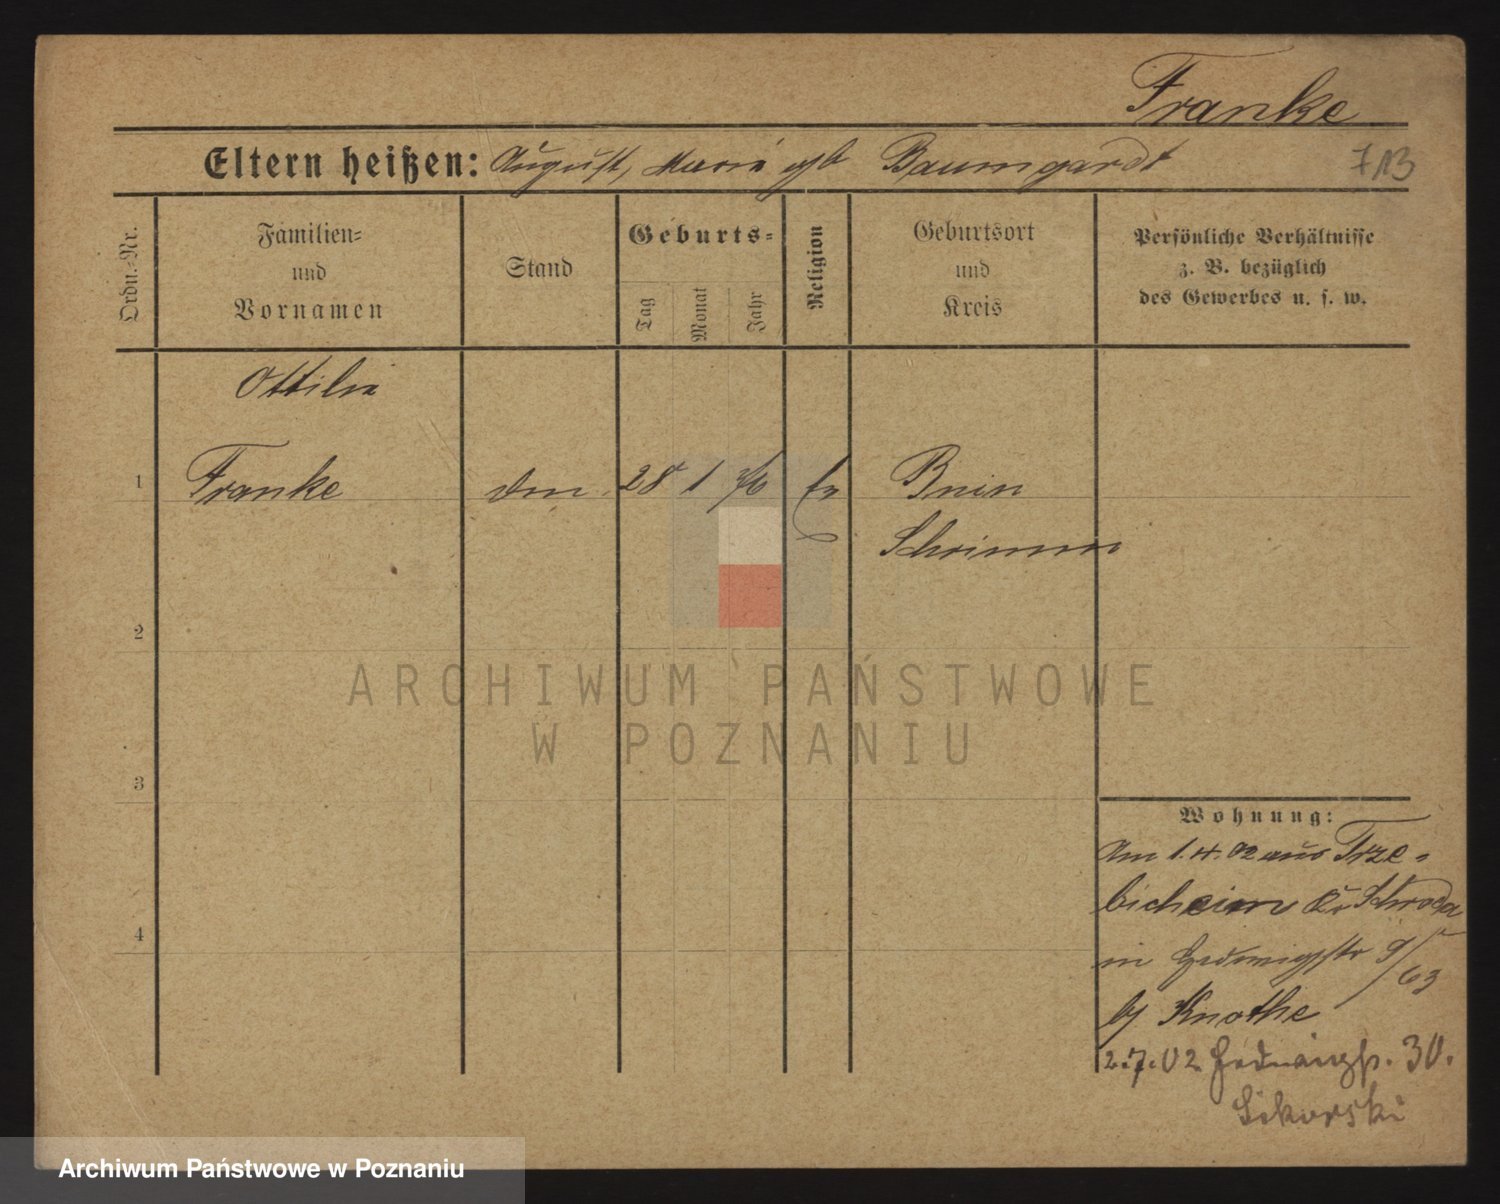 Franke
Eltern heißen: August, Marie gb Baumgardt
713
Ordn.-Nr.
Familien-
und
Vornamen
Stand
Geburts-
Tag
Monat
Jahr
Religion
Geburtsort
und
Kreis
Persönliche Verhältnisse
z. B. bezüglich
des Gewerbes u. s. w.
Ottilie
1 Franke 28 1 76 Ev Bnin
Schrimm
2
3
4
ARCHIWUM PAŃSTWOWE
W POZNANIU
Wohnung:
Am 1.4.02 aus Trze-
bicheim Kr Schroda
in Hedwigstr 9/63
bj Knothe
2.7.02 30.
Sikorski
Archiwum Państwowe w Poznaniu